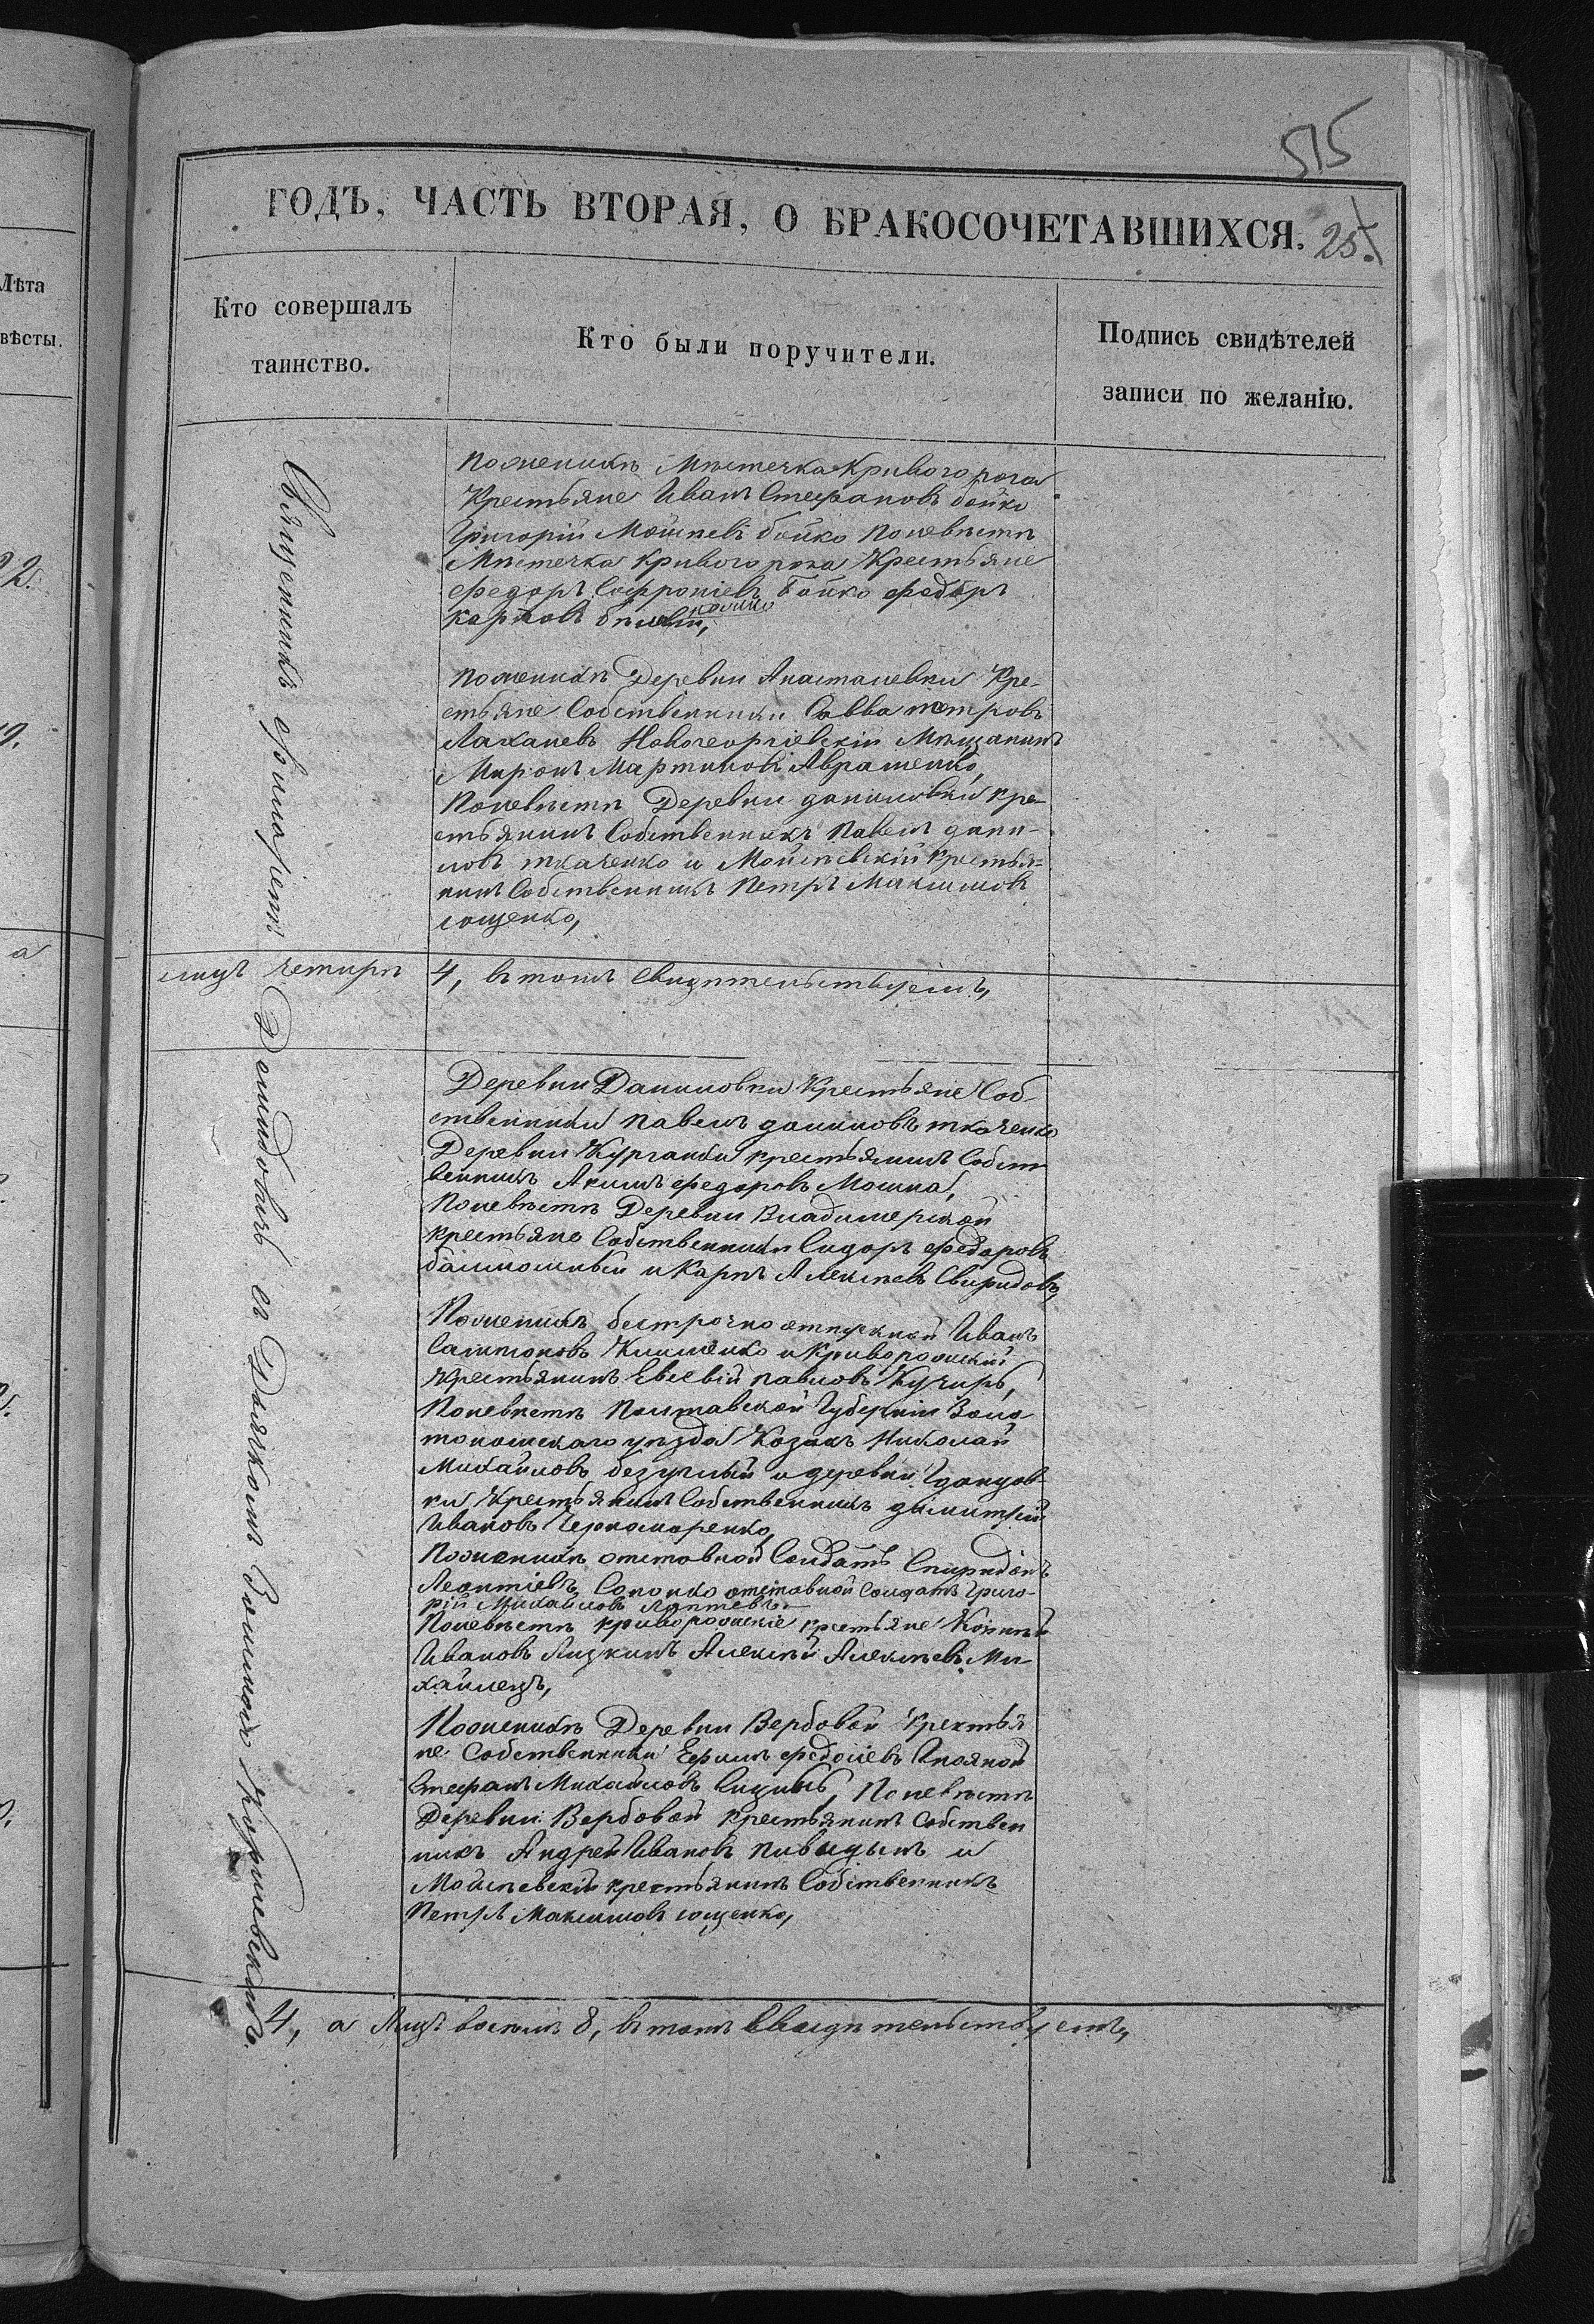 515
ГОДЪ, ЧАСТЬ ВТОРАЯ, О БРАКОСОЧЕТАВШИХСЯ.
25
Лѣта
вѣсты.
Кто совершалъ
таинство.
Кто были поручители.
Подпись свидѣтелей
записи по желанію.
Священникъ Доминовичъ съ Дьячкомъ
По женихѣ Мѣстечка Кривого рога
Крестьяне Иванъ Стефановъ бойко
Григорій Моисѣевъ бойко По невѣстѣ
Мѣстечка Кривого рога Крестьяне
Федоръ Софроніевъ Бойко Федоръ
Карповъ
По женихѣ Деревни Анастасіевки Кре-
стьяне Собственники Савва петровъ
Лаханевъ Новогеоргіевскій Мѣщанинъ
Миронъ Мартиновъ Авраменко,
По невѣстѣ Деревни даниловки кре-
стьянинъ Собственникъ Павелъ дани-
ловъ ткаченко и Моисѣевскій крестья-
нинъ Собственникъ Петръ Максимовъ
ющенко,
лицъ четыри 4, въ томъ Свидѣтельствуемъ,
Деревни Даниловки Крестьяне Соб-
ственники павелъ даниловъ ткаченко
Деревни Курганки крестьянинъ Собст
венникъ Акимъ федоровъ Мошна,
По невѣстѣ Деревни Владимерской
крестьяне Собственники Сидоръ федоровъ
и Карпъ Алексѣевъ Свиридовъ,
По женихѣ безсрочно отпускной Иванъ
Клименко и Криворожскій
Крестьянинъ Евсевій павловъ Кучиръ,
По невѣстѣ Полтавской Губерніи Золо
тоношскаго уѣзда Козакъ Николай
Михайловъ безуглый и деревни Гданцов-
ки Крестьянинъ Собственникъ димитрій
Ивановъ Черноморенко,
По женихѣ отставной Солдатъ Спиридонъ
Леонтіевъ Сопочко отставной Солдатъ Григо-
рій Михайловъ Лаптевъ.
По невѣстѣ криворожскіе крестьяне
Ивановъ Лизкинъ Алексѣй Алексѣевъ Ми-
хайлецъ,
По женихѣ Деревни Вербовой Крестья
не Собственники Ефимъ федосіевъ
Стефанъ Михайловъ По невѣстѣ
Деревни Вербовой Крестьянинъ Собствен
никъ Андрей Ивановъ и
Моисѣевскій крестьянинъ Собственникъ
Петръ Максимовъ ющенко,
4, а Лицъ восемь 8, въ томъ Свидѣтельствуемъ,